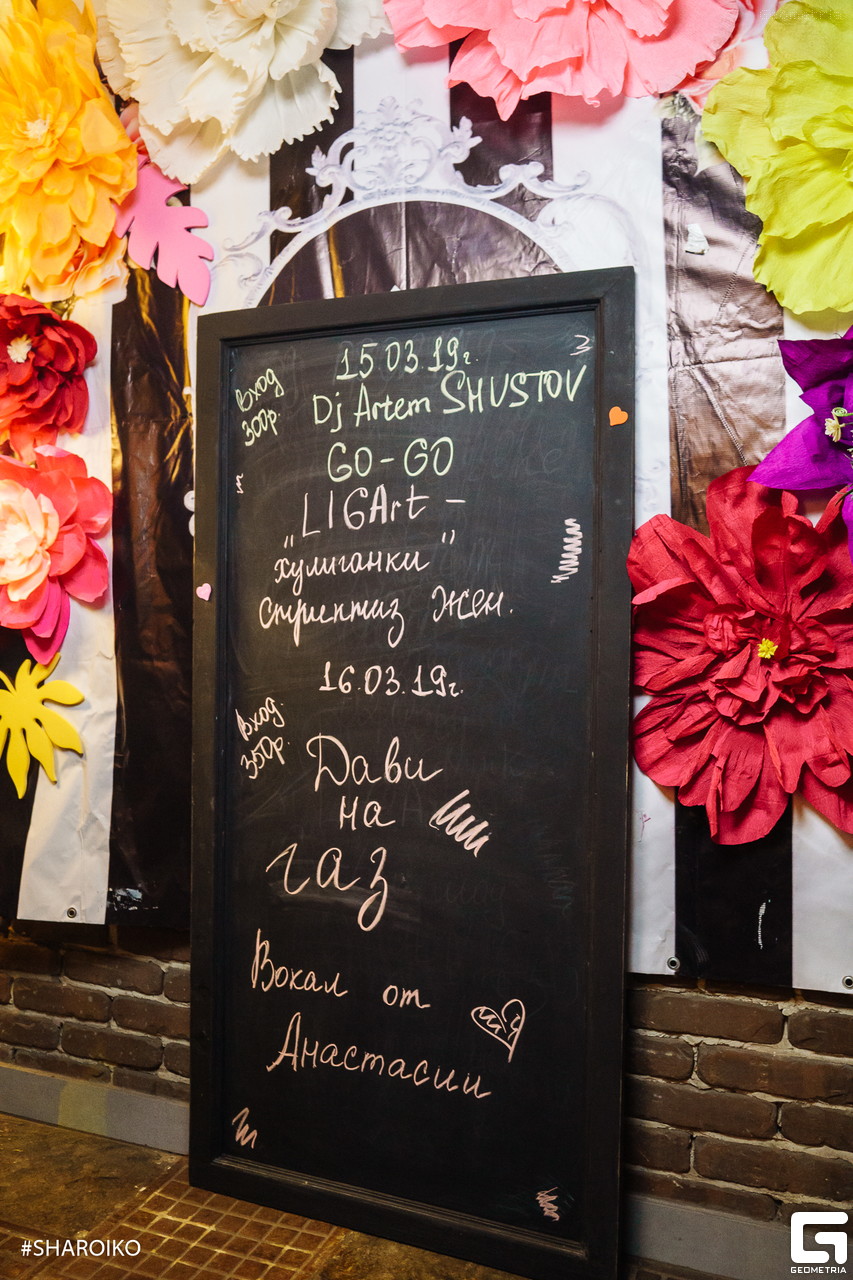 15 03 19г.
Вход
300р.
Dj Artem SHUSTOV
GO-GO
"LIGArt –
хулиганки"
Стриптиз жен.
16.03.19г.
Вход.
350р.
Дави
на
газ
Вокал от
Анастасии
#SHAROIKO
GEOMETRIA